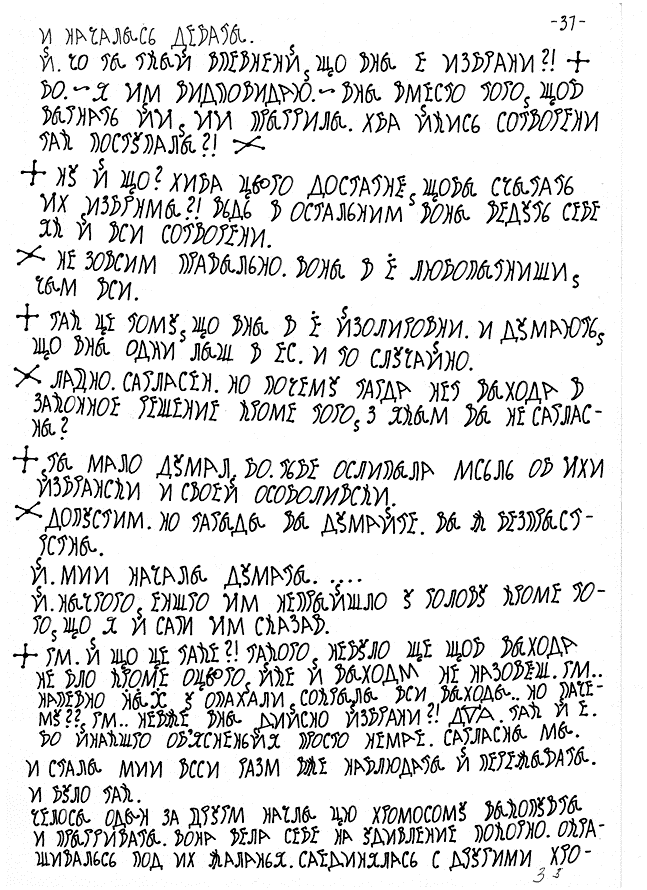 -37-
И НАЧАЛАСЬ ДЕБАТА.
Й. ЧО ТА ТКАЙ ВПЕВНЕНІЙ, ЩО ВНА Е ИЗБРАНИ?! +
БО.~Я ИМ ВИДПОВИДАЮ.~ВНА ВМЕСТО ТОГО, ЩОБ
ВАГНАТЬ ЙИ, ИИ ПРАГРИЛА. ХБА ЙКИСЬ СОТВОРЕНИ
ТАК ПОСТУПАЛА?! ×
+ НУ Й ЩО? ХИБА ЦЬОГО ДОСТАТНЕ, ЩОБА СЧАТАТЬ
ИХ ИЗБРНМА?! ВЕДЬ В ОСТАЛЬНИМ ВОНА ВЕДУТЬ СЕБЕ
ЯК Й ВСИ СОТВОРЕНИ.
× НЕ ЗОВСИМ ПРАВАЛЬНО. ВОНА В Ё ЛЮБОПАТНИШИ,
ЧАМ ВСИ.
+ ТАК ЦЕ ТОМУ, ЩО ВНА В Ё ЙЗОЛИРОВНИ. И ДУМАЮТЬ,
ЩО ВНА ОДНИ ЛАШ В ЕС. И ТО СЛУЧАЙНО.
× ЛАДНО. САГЛАСЕН. НО ПОЧЕМУ ТАГДА НЕТ ВАХОДА В
ЗАКОННОЕ РЕШЕНИЕ КРОМЕ ТОГО, З ЯКАМ ВА НЕ САГЛАС-
НА?
+ ТА МАЛО ДУМАЛ, БО. ТЬБЕ ОСЛИПАЛА МСЬЛЬ ОБ ИХИ
ЙЗБРАНСКИ И СВОЕЙ ОСОБОЛИВСКИ.
× ДОПУСТИМ. НО ТАГАДА ВА ДУМАЙТЕ. ВА Ж БЕЗПРАСТ-
РСТНА.
Й. МИИ НАЧАЛА ДУМАТА. ....
Й. НАЧТОГО, ЕНШТО ИМ НЕПРАЙШЛО У ГОЛОВУ КРОМЕ ТО-
ГО, ЩО Я Й САМ ИМ СКАЗАВ.
+ ГМ. Й ЩО ЦЕ ТАКЕ?! ТАКОГО, НЕБУЛО ЩЕ ЩОБ ВАХОДА
НЕ БЛО КРОМЕ ОЦЬОГО, ЙКЕ Й ВАХОДМ НЕ НАЗОВЕШ. ГМ..
НАПЕВНО НАХ У ОПАХАЛИ, СОКРАЛА ВСИ ВАХОДА.. НО ПАЧЕ-
МУ??, ГМ.. НЕВЖЕ ВНА ДИЙСНО ЙЗБРАНИ?! ДА. ТАК Й Е.
БО ЙНАКШТО ОБ'ЯСНЕНЬЯ ПРОСТО НЕМАЕ. САГЛАСНА МА.
И СТАЛА МИИ ВССИ РАЗМ ВЖЕ НАБЛЮДАТА Й ПЕРЕЖАВАТА.
И БУЛО ТАК.
ЧЕЛОСА ОДАН ЗА ДРУГМ НАЧЛА ЦЮ ХРОМОСОМУ ВАКОПУВТА
И ПРАГРИВАТА. ВОНА ВЕЛА СЕБЕ НА УДИВЛЕНИЕ ПОКОРНО. ОКРА-
ШИВАЛЬСЬ ПОД ИХ ЖАЛАНЬЯ. САЕДИНЯЛАСЬ С ДРУГИМИ ХРО-